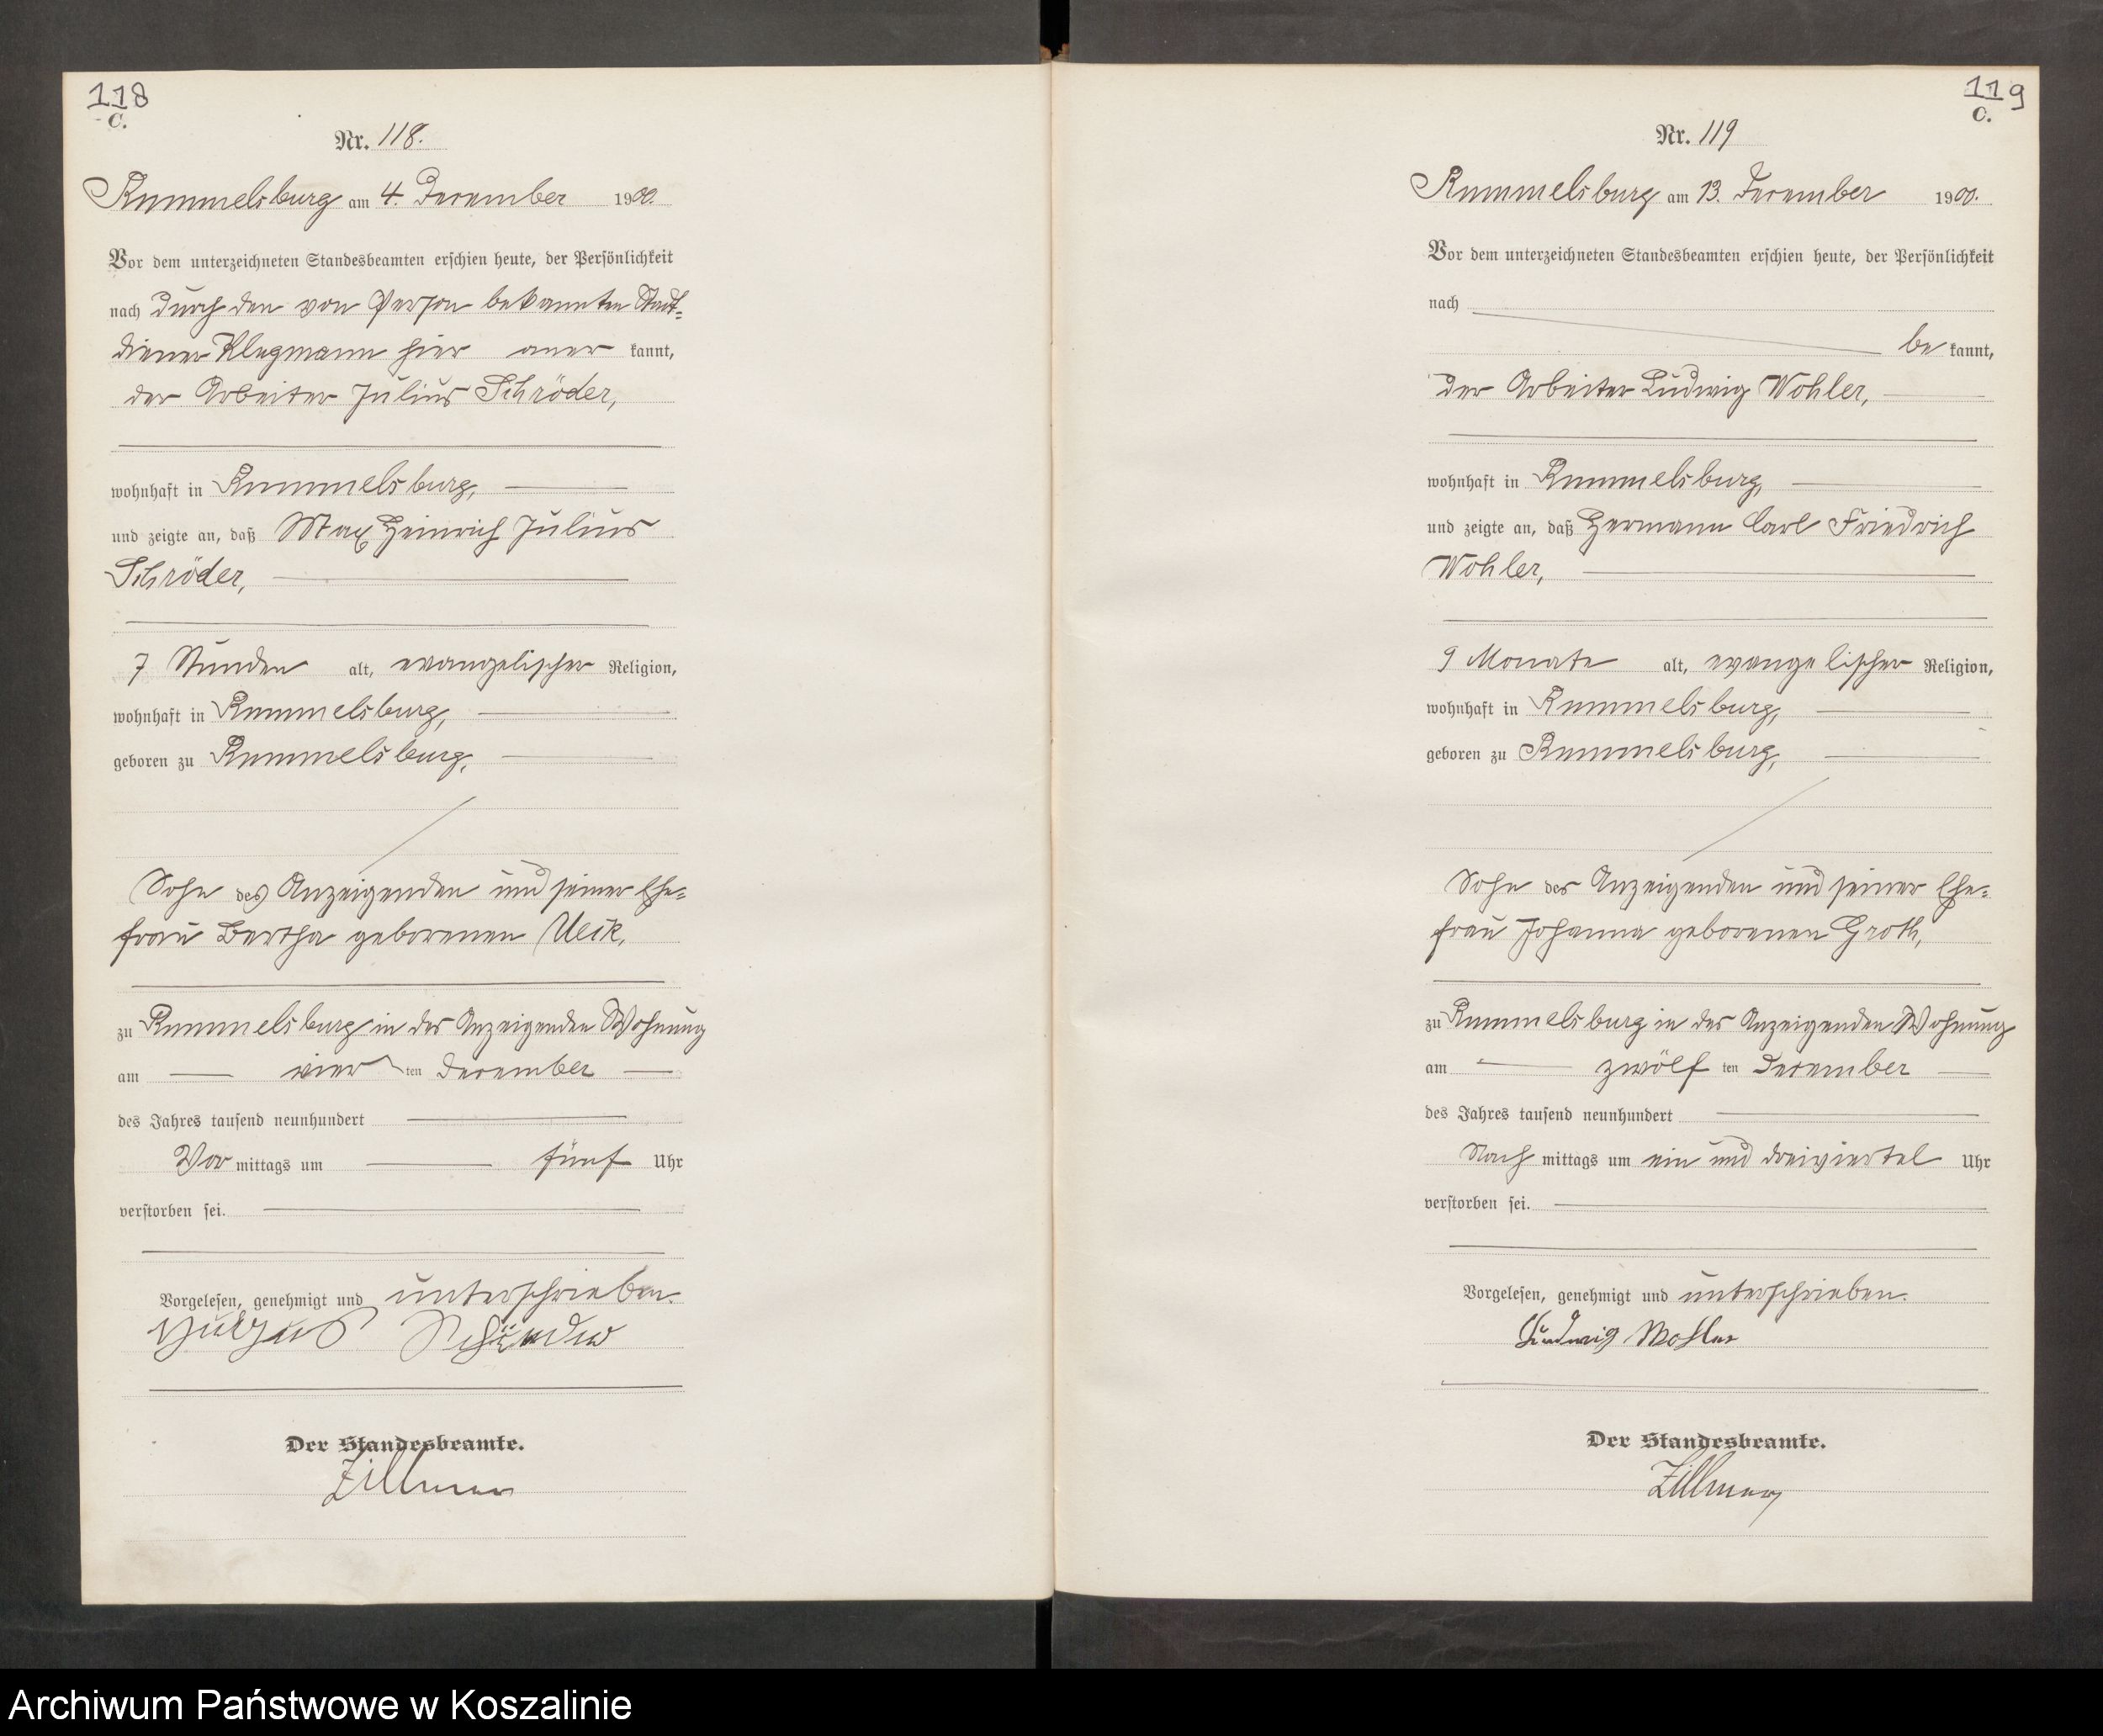 118
C.
Nr. 118.
Rummelsburg am 4. Dezember 1900.
Vor dem unterzeichneten Standesbeamten erschien heute, der Persönlichkeit
nach durch den von Person bekannten Stadt-
diener Klugmann hier aner kannt,
der Arbeiter Julius Schröder,
wohnhaft in Rummelsburg,
und zeigte an, daß Max Heinrich Julius
Schröder,
7 Stunden alt, evangelischer Religion,
wohnhaft in Rummelsburg,
geboren zu Rummelsburg,
Sohn des Anzeigenden und seiner Ehe-
frau Bertha geborenen
zu Rummelsburg in des Anzeigenden Wohnung
am vier ten Dezember
des Jahres tausend neunhundert
Vor mittags um fünf Uhr
verstorben sei.
Vorgelesen, genehmigt und unterschrieben.
Julius Schröder
Der Standesbeamte.
Zillmer
119
C.
Nr. 119
Rummelsburg am 13. Dezember 1900.
Vor dem unterzeichneten Standesbeamten erschien heute, der Persönlichkeit
nach
be kannt,
der Arbeiter Ludwig Wohler,
wohnhaft in Rummelsburg,
und zeigte an, daß Hermann Carl Friedrich
Wohler,
9 Monate alt, evangelischer Religion,
wohnhaft in Rummelsburg,
geboren zu Rummelsburg,
Sohn des Anzeigenden und seiner Ehe-
frau Johanna geborenen Groth,
zu Rummelsburg in des Anzeigenden Wohnung
am zwölf ten Dezember
des Jahres tausend neunhundert
Nach mittags um ein und dreiviertel Uhr
verstorben sei.
Vorgelesen, genehmigt und unterschrieben.
Ludwig Wohler
Der Standesbeamte.
Zillmer
Archiwum Państwowe w Koszalinie